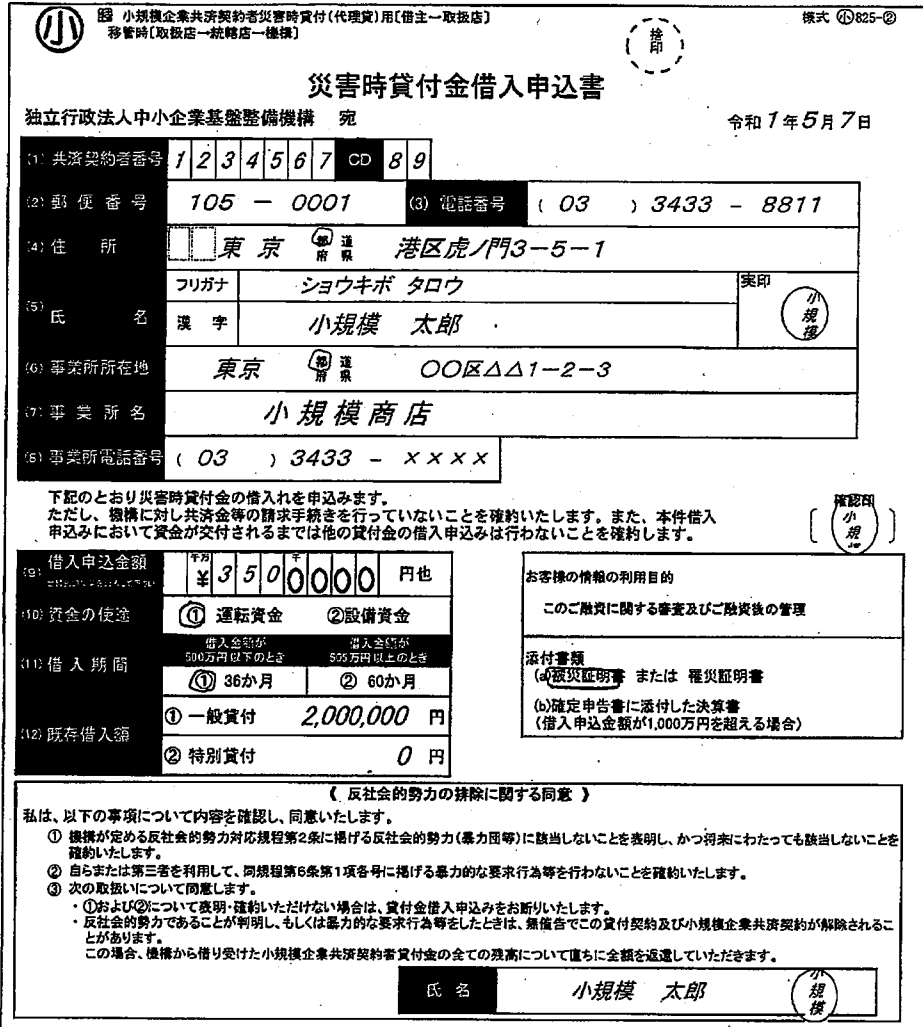 小
小規模企業共済契約者災害時貸付(代理貸)用[借主→取扱店]
移管時[取扱店→統轄店→機構]
様式 小825-②
捨印
災害時貸付金借入申込書
独立行政法人中小企業基盤整備機構 宛
令和1年5月7日
(1) 共済契約者番号 1 2 3 4 5 6 7 CD 8 9
(2) 郵便番号 105 - 0001 (3) 電話番号 ( 03 ) 3433 - 8811
(4) 住所 東京 都道府県 港区虎ノ門3-5-1
(5) 氏名 フリガナ ショウキボ タロウ 実印
漢字 小規模 太郎 小規模
(6) 事業所所在地 東京 都道府県 〇〇区△△1-2-3
(7) 事業所名 小規模商店
(8) 事業所電話番号 ( 03 ) 3433 - ××××
下記のとおり災害時貸付金の借入れを申込みます。
ただし、機構に対し共済金等の請求手続きを行っていないことを確約いたします。また、本件借入
申込みにおいて資金が交付されるまでは他の貸付金の借入申込みは行わないことを確約します。
確認印
小規
(9) 借入申込金額 千万 ¥ 3 5 0 千 0 0 0 0 円也
(10) 資金の使途 ① 運転資金 ②設備資金
(11) 借入期間 借入金額が500万円以下のとき 借入金額が505万円以上のとき
① 36か月 ② 60か月
(12) 既存借入額 ① 一般貸付 2,000,000 円
② 特別貸付 0 円
お客様の情報の利用目的
このご融資に関する審査及びご融資後の管理
添付書類
(a)被災証明書 または 罹災証明書
(b)確定申告書に添付した決算書
(借入申込金額が1,000万円を超える場合)
《 反社会的勢力の排除に関する同意 》
私は、以下の事項について内容を確認し、同意いたします。
① 機構が定める反社会的勢力対応規程第2条に掲げる反社会的勢力(暴力団等)に該当しないことを表明し、かつ将来にわたっても該当しないことを
確約いたします。
② 自らまたは第三者を利用して、同規程第6条第1項各号に掲げる暴力的な要求行為等を行わないことを確約いたします。
③ 次の取扱いについて同意します。
・①および②について表明・確約いただけない場合は、貸付金借入申込みをお断りいたします。
・反社会的勢力であることが判明し、もしくは暴力的な要求行為等をしたときは、無催告でこの貸付契約及び小規模企業共済契約が解除されるこ
とがあります。
この場合、機構から借り受けた小規模企業共済契約者貸付金の全ての残高について直ちに全額を返還していただきます。
氏名 小規模 太郎 小規模